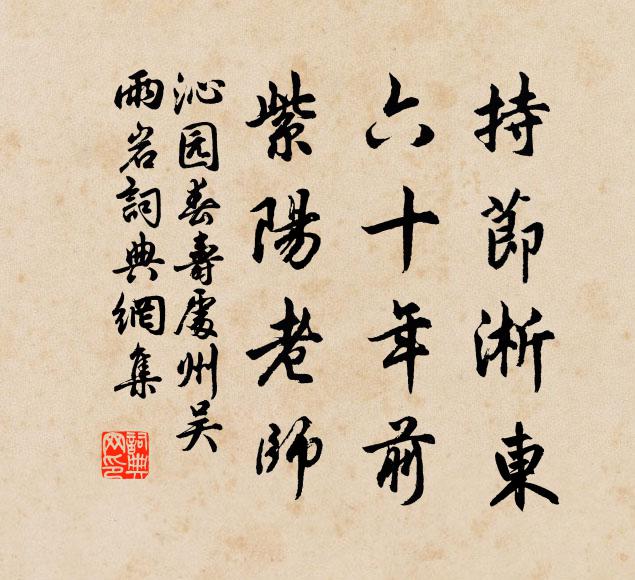 持節淅東
六十年前
紫陽老師
沁园春壽處州吴
雨岩詞典網集
詞典
网印